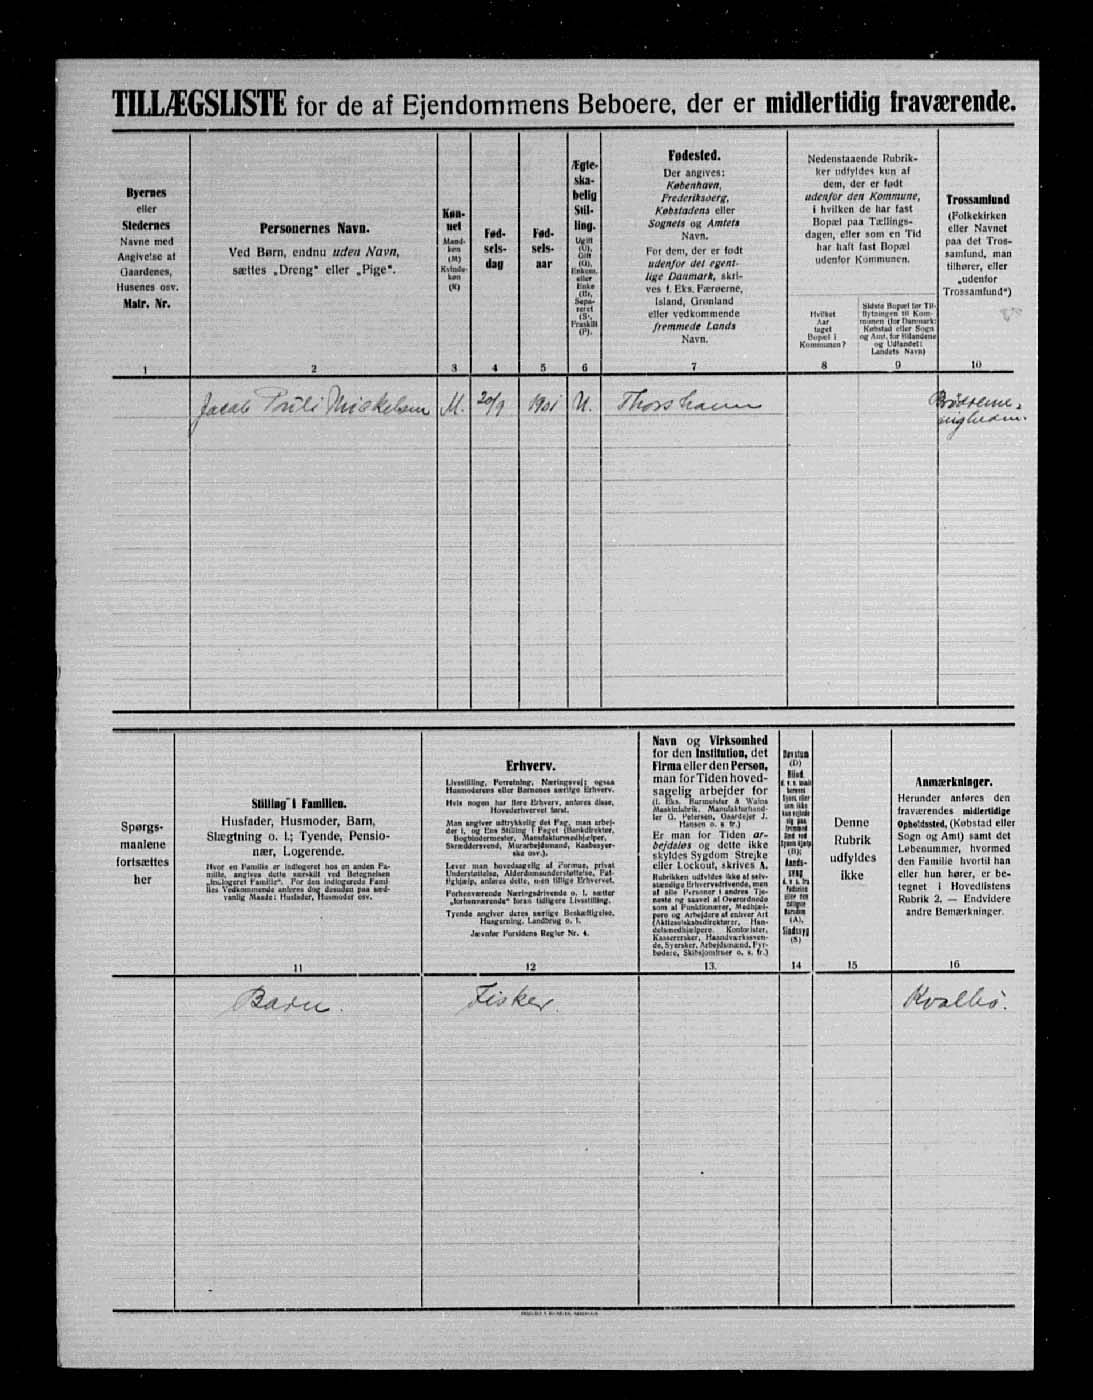 TILLÆGSLISTE for de af Ejendommens Beboere, der er midlertidig fraværende.
Byernes
eller
Stedernes
Navne med
Angivelse af
Gaardenes,
Husenes osv.
Matr. Nr.
1
Personernes Navn.
Ved Børn, endnu uden Navn,
sættes „Dreng“ eller „Pige“.
2
Køn-
net
Mand-
køn
(M)
Kvinde-
køn
(K)
3
Fød-
sels-
dag
4
Fød-
sels-
aar
5
Ægte-
ska-
belig
Stil-
ling.
Ugift
(U),
Gift
(G),
Enkem.
eller
Enke
(E),
Sepa-
reret
(S),
Fraskilt
(F).
6
Fødested.
Der angives:
København,
Frederiksberg,
Købstadens eller
Sognets og Amtets
Navn.
For dem, der er født
udenfor det egent-
lige Danmark, skri-
ves f. Eks. Færøerne,
Island, Grønland
eller vedkommende
fremmede Lands
Navn.
7
Nedenstaaende Rubrik-
ker udfyldes kun af
dem, der er født
udenfor den Kommune,
i hvilken de har fast
Bopæl paa Tællings-
dagen, eller som en Tid
har haft fast Bopæl
udenfor Kommunen.
Hvilket
Aar
taget
Bopæl i
Kommunen?
8
Sidste Bopæl før Til-
flytningen til Kom-
munen (for Danmark:
Købstad eller Sogn
og Amt, for Bilandene
og Udlandet:
Landets Navn)
9
Trossamfund
(Folkekirken
eller Navnet
paa det Tros-
samfund, man
tilhører, eller
„udenfor
Trossamfund“)
10
Jacob Pouli Mickelsen M. 20/9 1901 U. Thorshavn Brödreme-
nigheden.
Spørgs-
maalene
fortsættes
her
Stilling i Familien.
Husfader, Husmoder, Barn,
Slægtning o. l.; Tyende, Pensio-
nær, Logerende.
Hvor en Familie er indlogeret hos en anden Fa-
milie, angives dette særskilt ved Betegnelsen
„Indlogeret Familie“. For den indlogerede Fami-
lies Vedkommende anføres dog desuden paa sæd-
vanlig Maade: Husfader, Husmoder osv.
11
Erhverv.
Livsstilling, Forretning, Næringsvej; ogsaa
Husmoderens eller Børnenes særlige Erhverv.
Hvis nogen har flere Erhverv, anføres disse,
Hovederhvervet først.
Man angiver udtrykkelig det Fag, man arbej-
der i, og Ens Stilling i Faget (Bankdirektør,
Bogbindermester, Manufakturmedhjælper,
Skræddersvend, Murarbejdsmand, Kasbesyer-
ske osv.).
Lever man hovedsagelig af Formue, privat
Understøttelse, Alderdomsunderstøttelse, Fat-
tighjælp, anføres dette, men tillige Erhvervet.
Forhenværende Næringsdrivende o. l. sætter
„forhenværende“ foran tidligere Livsstilling.
Tyende angiver deres særlige Beskæftigelse,
Husgerning, Landbrug o. l.
Jævnfør Forsidens Regler Nr. 4.
12
Navn og Virksomhed
for den Institution, det
Firma eller den Person,
man for Tiden hoved-
sagelig arbejder for
(f. Eks. Burmeister & Wains
Maskinfabrik, Manufakturhand-
ler G. Petersen, Gaardejer J.
Hansen o. s. fr.)
Er man for Tiden ar-
bejdsløs og dette ikke
skyldes Sygdom Strejke
eller Lockout, skrives A.
Rubrikken udfyldes ikke af selv-
stændige Erhvervsdrivende, men
af alle Personer i andres Tje-
neste og saavel af Overordnede
som af Funktionærer, Medhjæl-
pere og Arbejdere af enhver Art
(Aktieselskabsdirektører, Han-
delsmedhjælpere, Kontorister,
Kasserersker, Haandværkssven-
de, Syersker, Arbejdsmænd, Fyr-
bødere, Skibsjomfruer o. s. fr.)
13.
Døvstum
(D)
Blind
(B);
Aands-
svag
(A),
Sindssyg
(S)
14
Denne
Rubrik
udfyldes
ikke
15
Anmærkninger.
Herunder anføres den
fraværendes midlertidige
Opholdssted, (Købstad eller
Sogn og Amt) samt det
Løbenummer, hvormed
den Familie hvortil han
eller hun hører, er be-
tegnet i Hovedlistens
Rubrik 2, — Endvidere
andre Bemærkninger.
16
Barn. Fisker. Kvalbø.